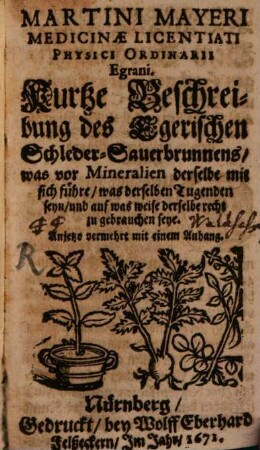 MARTINI MAYERI
MEDICINÆ LICENTIATI
PHYSICI ORDINARII
Egrani.
Kurtze Beschrei-
bung des Egerischen
Schleder-Sauerbrunnens/
was vor Mineralien derselbe mit
sich führe/ was derselben Tugenden
seyn/ und auf was weise derselbe recht
zu gebrauchen seye.
Anjetzo vermehrt mit einem Anhang.
R
Nürnberg/
Gedruckt/ bey Wolff Eberhard
Felßeckern/ Im Jahr/ 1671.